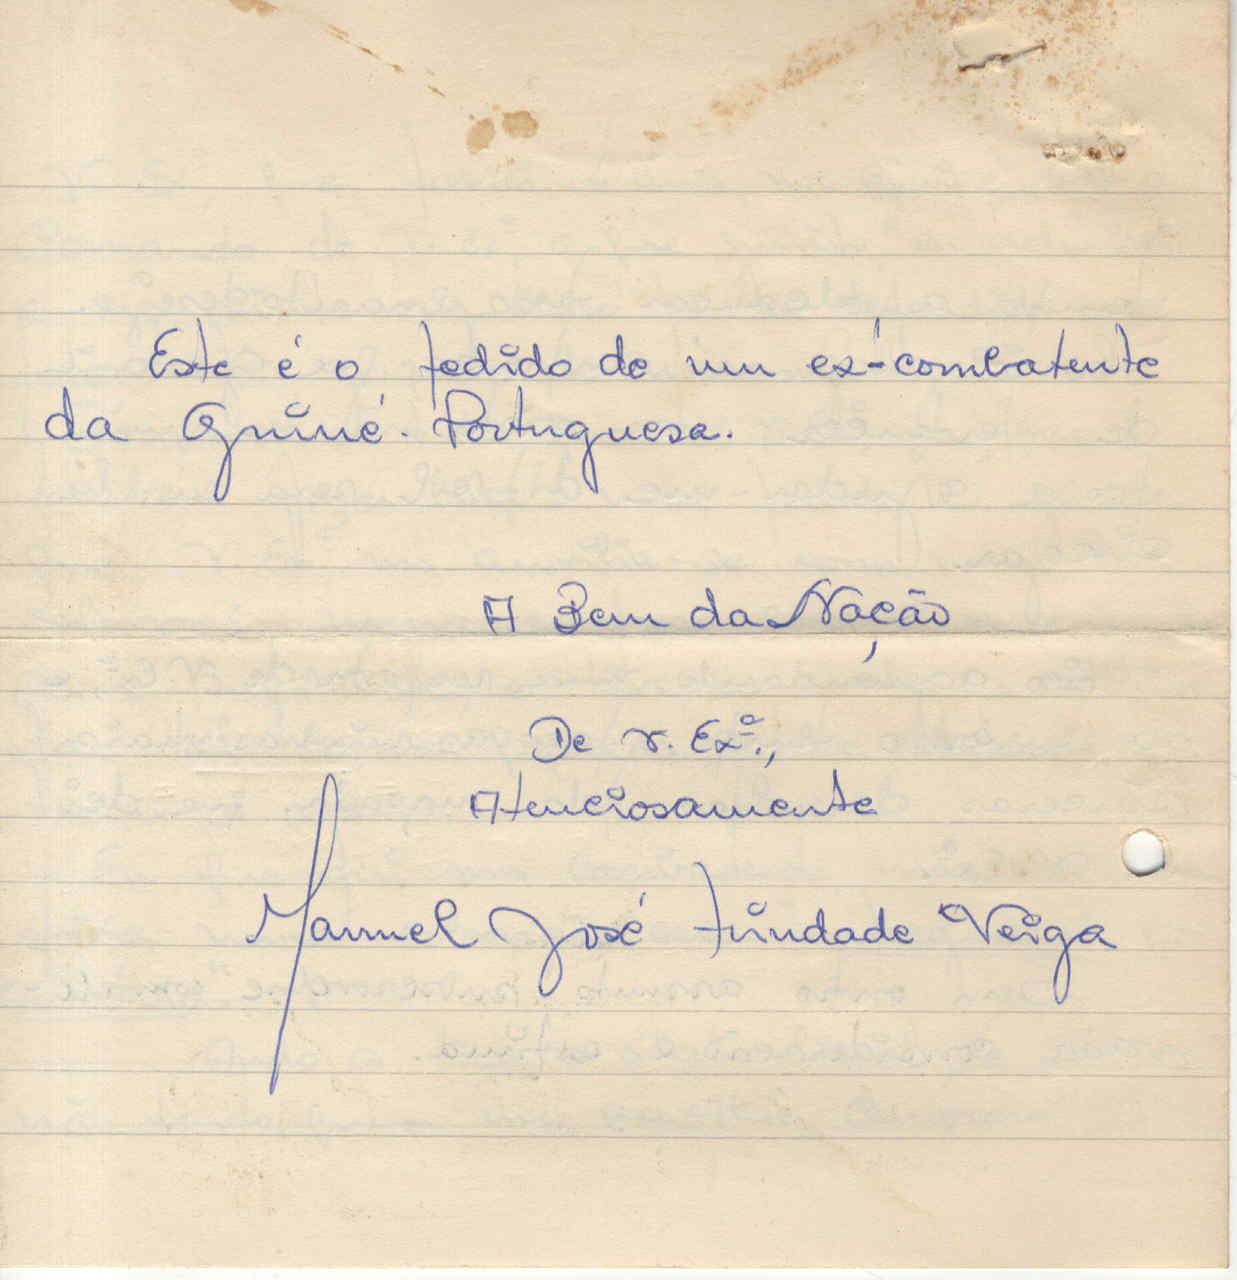 Este é o pedido de um ex-combatente
da Guiné. Portuguesa.
A Bem da Nação
De V. Exª.,
Atenciosamente
Manuel José Trindade Veiga